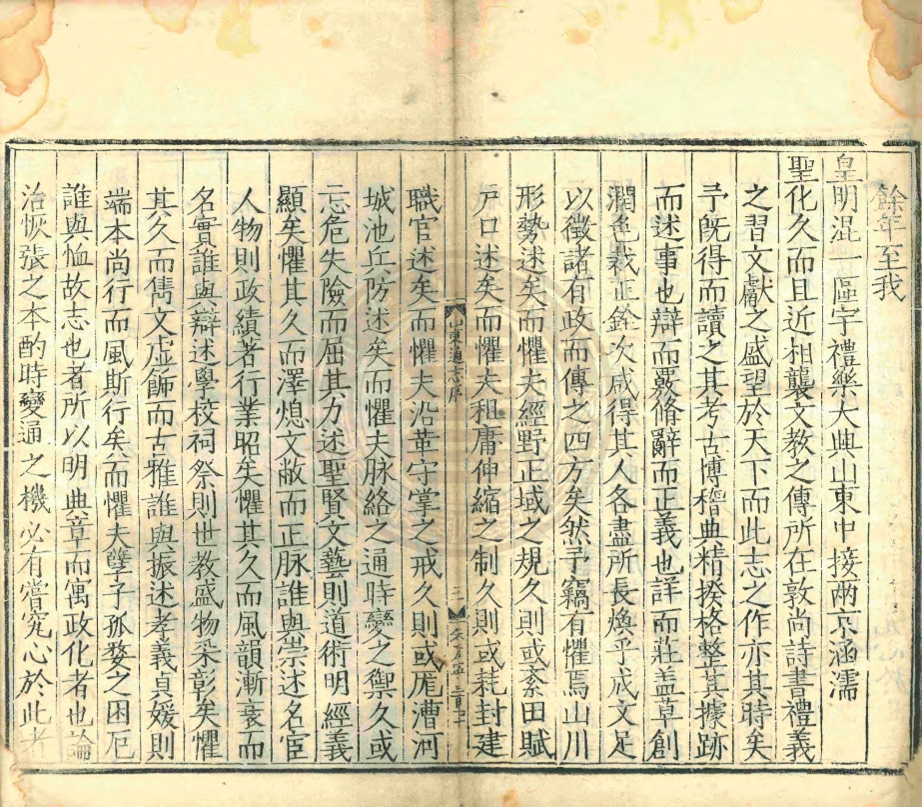 餘年至我
皇明混一區宇禮樂大興山東中接兩京涵濡
聖化久而且近相襲文教之傳所在敦尚詩書禮義
之習文獻之盛望於天下而此志之作亦其時矣
予既得而讀之其考古博稽典精揆格整其據跡
而述事也辯而覈脩辭而正義也詳而莊盖草創
潤色裁正銓次咸得其人各盡所長煥乎成文足
以徵諸有政而傳之四方矣然予竊有懼焉山川
形勢述矣而懼夫經野正域之規久則或紊田賦
戶口述矣而懼夫租庸伸縮之制久則或耗封建
山東通志序
三
職官述矣而懼夫沿革守掌之戒久則或厖漕河
城池兵防述矣而懼夫脉絡之通時變之禦久或
忘危失險而屈其力述聖賢文藝則道術明經義
顯矣懼其久而澤熄文敝而正脉誰與崇述名宦
人物則政績著行業昭矣懼其久而風韻漸衰而
名實誰與辯述學校祠祭則世教盛物采彰矣懼
其久而雋文虛飾而古雅誰與振述孝義貞媛則
端本尚行而風斯行矣而懼夫孽子孤嫠之困厄
誰與恤故志也者所以明典章而寓政化者也論
治恢張之本酌時變通之機必有嘗究心於此者